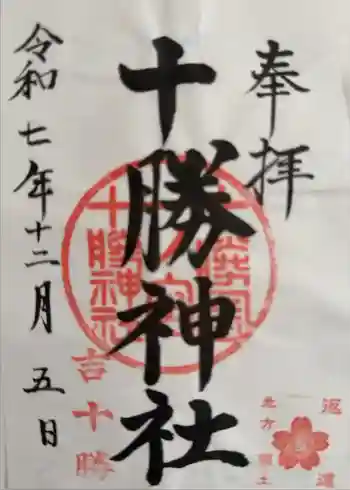 奉拝
十勝神社
令和七年十二月五日
十勝神社
吉十勝